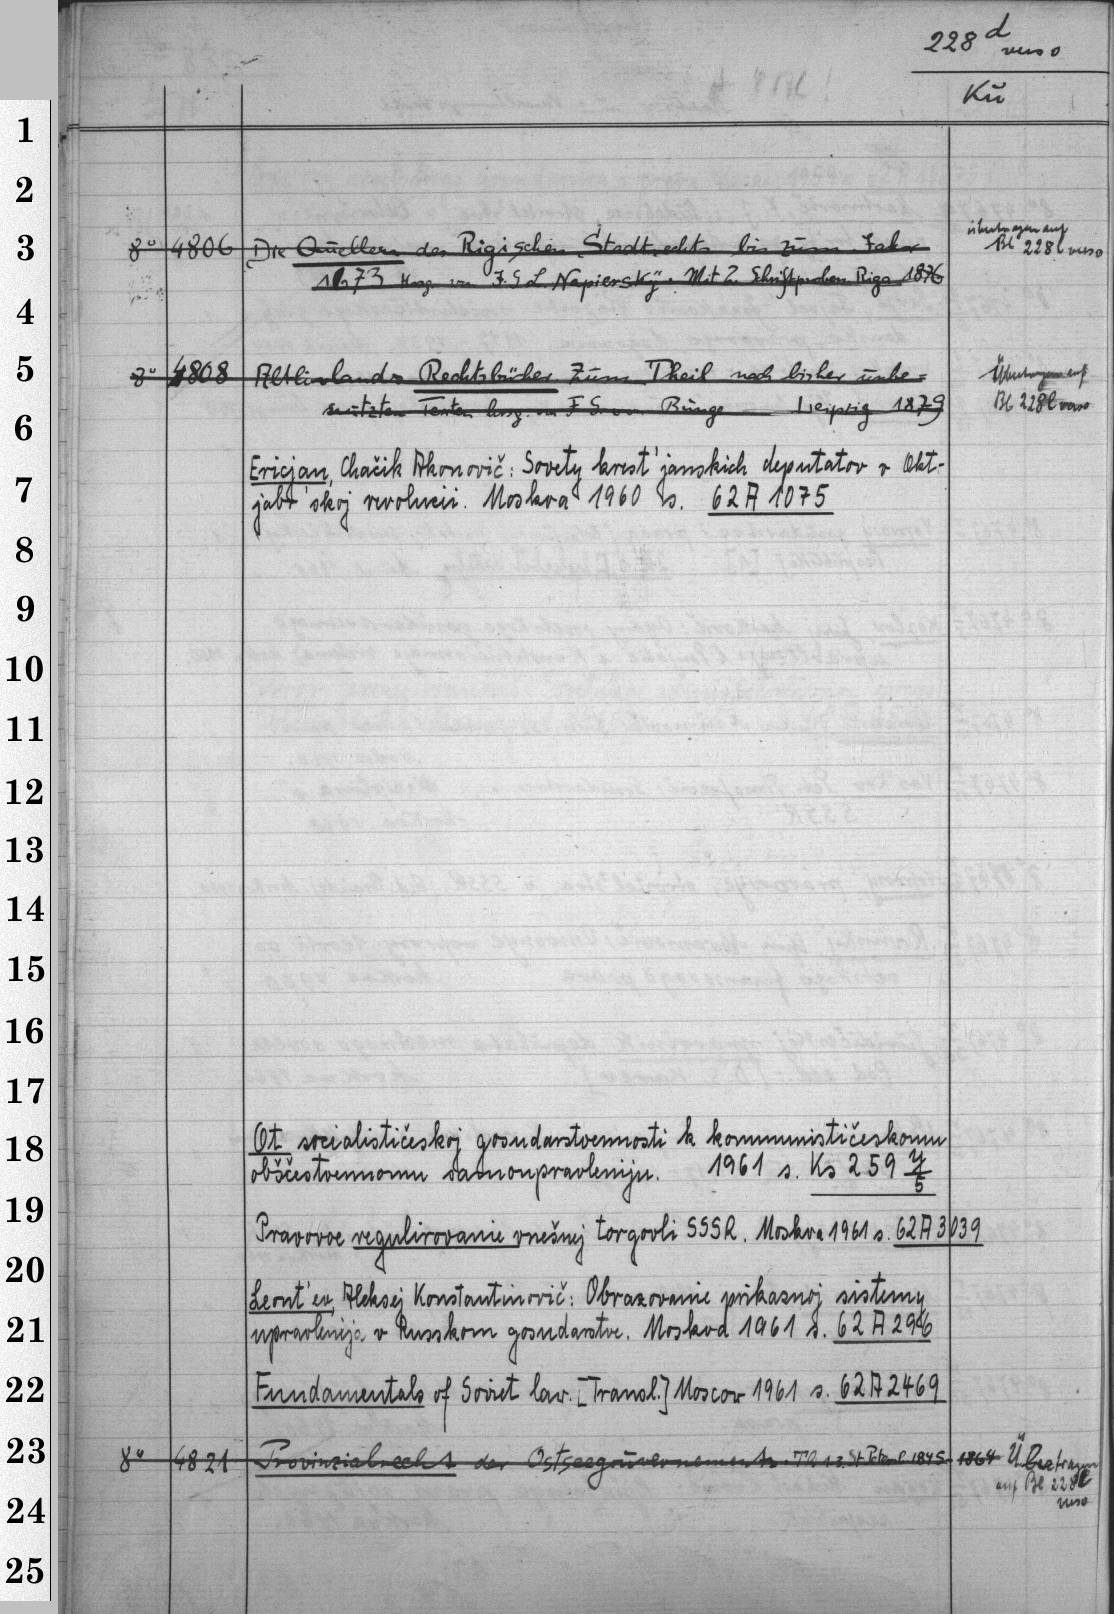 228 d
verso
Kü
1
2
3
8° 4806 Die Quellen des Rigischen Stadtrechts bis zum Jahr
übertragen auf
Bl 228 l verso
1673 Hrsg. von J. G. L. Napiersky. Mit 2 Schriftproben Riga 1876
4
5
8° 4808 Altlivlands Rechtsbücher zum Theil noch bisher unbe=
Übertragen auf
Bl 228 l verso
nutzten Texten hrsg. von F. G. von Bunge Leipzig 1879
6
Ericjan, Chačik Akonovič: Sovety krest'janskich deputatov v Okt-
7
jabr'skoj revolucii. Moskva 1960 s. 62 A 1075
8
9
10
11
12
13
14
15
16
17
18
Ot socialističeskoj gosudarstvennosti k kommunističeskomu
obščestvennomu samoupravleniju. 1961 s. Ks 259 y/5
19
Pravovoe regulirovanie vnešnej torgovli SSSR. Moskva 1961 s. 62 A 3039
20
Leont'ev, Aleksej Konstantinovič: Obrazovanie prikasnoj sistemy
21
upravlenija v Russkom gosudarstve. Moskva 1961 s. 62 A 296
22
Fundamentals of Soviet law. [Transl.] Moscow 1961 s. 62 A 2469
23
8° 4821 Provinzialrecht der Ostseegouvernements. Th 1-3. St Petersb. 1845-1864
auf Bl 228 l
verso
24
25